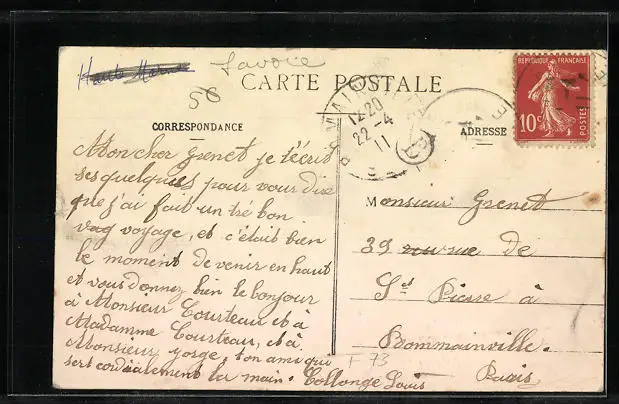 Haute Marne
Savoie
58
CARTE POSTALE
CORRESPONDANCE
ADRESSE
RÉPUBLIQUE FRANÇAISE
10c
POSTES
12-20
22-4
11
Mon cher Grenet je t'écrit
ses quelques pour vous dire
que j'ai fait un tré bon
voyage, et c'était bien
le moment de venir en haut
et vous donnez bien le bonjour
à Monsieur Courteau et à
Madamme Courteau, et à
Monsieur yorge, ton ami qui
sert cordialement la main. Collonge Louis
Monsieur Grenet
39 rue de
St Pierre à
Rommainville.
Paris
+ 73